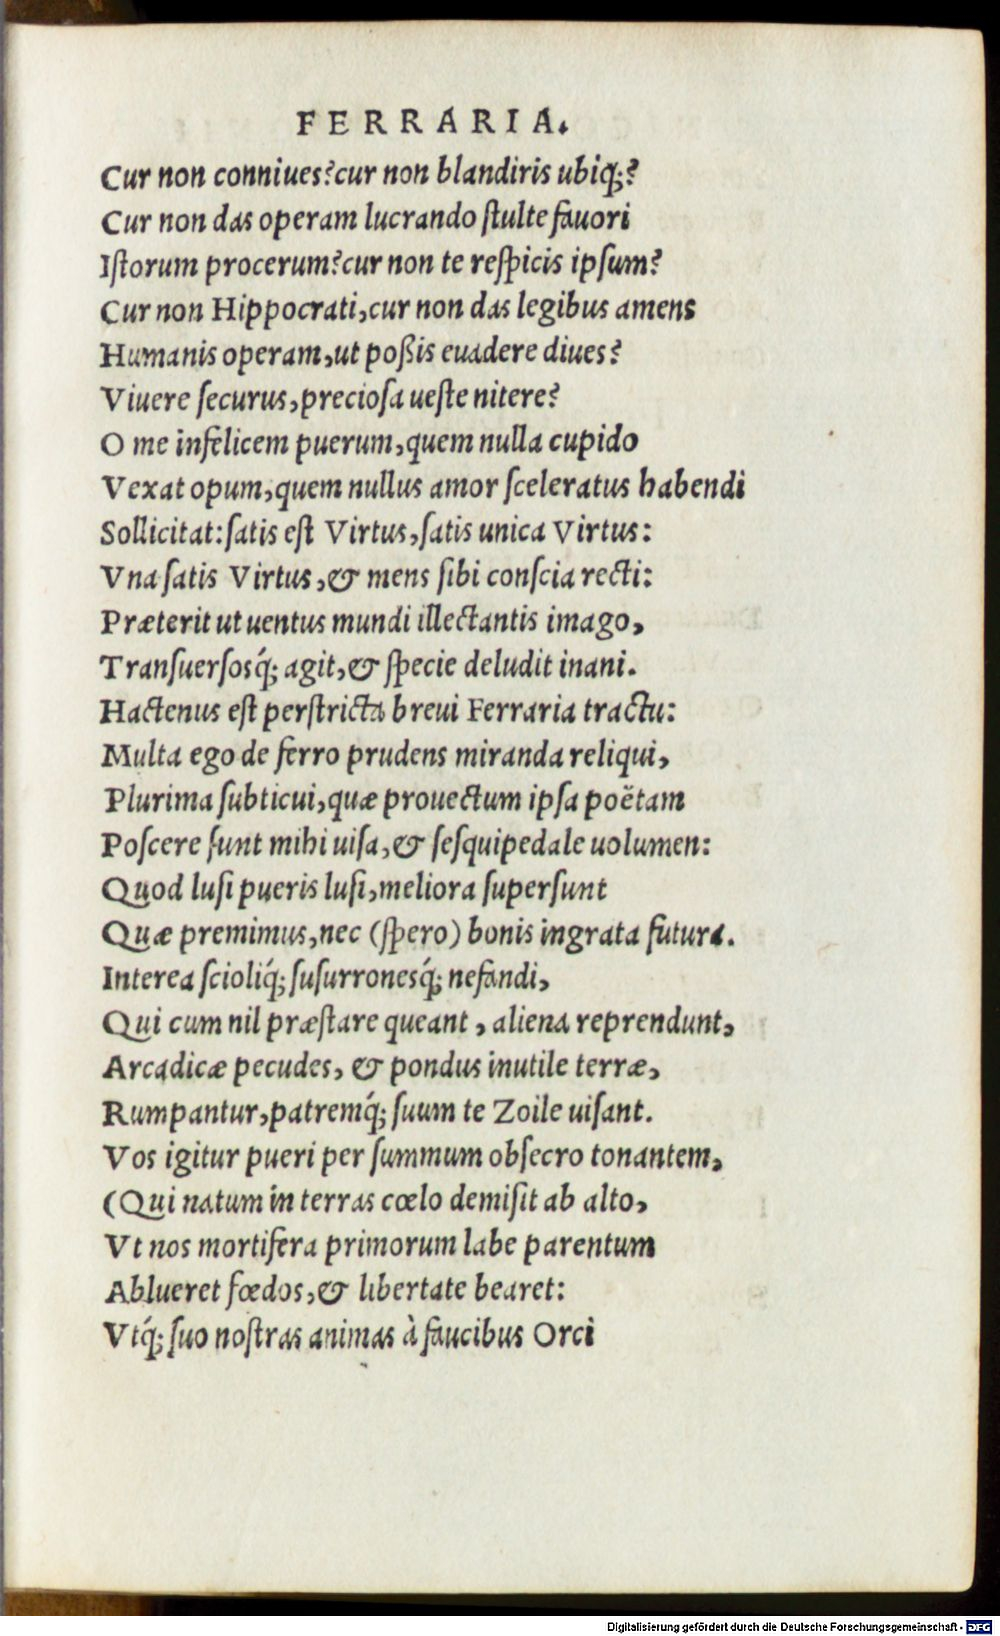 FERRARIA.
Cur non conniues? cur non blandiris ubiq;?
Cur non das operam lucrando ſtulte fauori
Iſtorum procerum? cur non te reſpicis ipſum?
Cur non Hippocrati, cur non das legibus amens
Humanis operam, ut poßis euadere diues?
Viuere ſecurus, precioſa ueſte nitere?
O me infelicem puerum, quem nulla cupido
Vexat opum, quem nullus amor ſceleratus habendi
Sollicitat: ſatis eſt Virtus, ſatis unica Virtus:
Vna ſatis Virtus, & mens ſibi conſcia recti:
Præterit ut uentus mundi illectantis imago,
Tranſuerſosq́; agit, & ſpecie deludit inani.
Hactenus eſt perſtricta breui Ferraria tractu:
Multa ego de ferro prudens miranda reliqui,
Plurima ſubticui, quæ prouectum ipſa poëtam
Poſcere ſunt mihi uiſa, & ſeſquipedale uolumen:
Quod luſi pueris luſi, meliora ſuperſunt
Quæ premimus, nec (ſpero) bonis ingrata futura.
Interea ſcioliq́; ſuſurronesq́; nefandi,
Qui cum nil præſtare queant, aliena reprendunt,
Arcadicæ pecudes, & pondus inutile terræ,
Rumpantur, patremq́; ſuum te Zoile uiſant.
Vos igitur pueri per ſummum obſecro tonantem,
(Qui natum in terras cœlo demiſit ab alto,
Vt nos mortifera primorum labe parentum
Ablueret fœdos, & libertate bearet:
Vtq́; ſuo noſtras animas à faucibus Orci
Digitalisierung gefördert durch die Deutsche Forschungsgemeinschaft - DFG